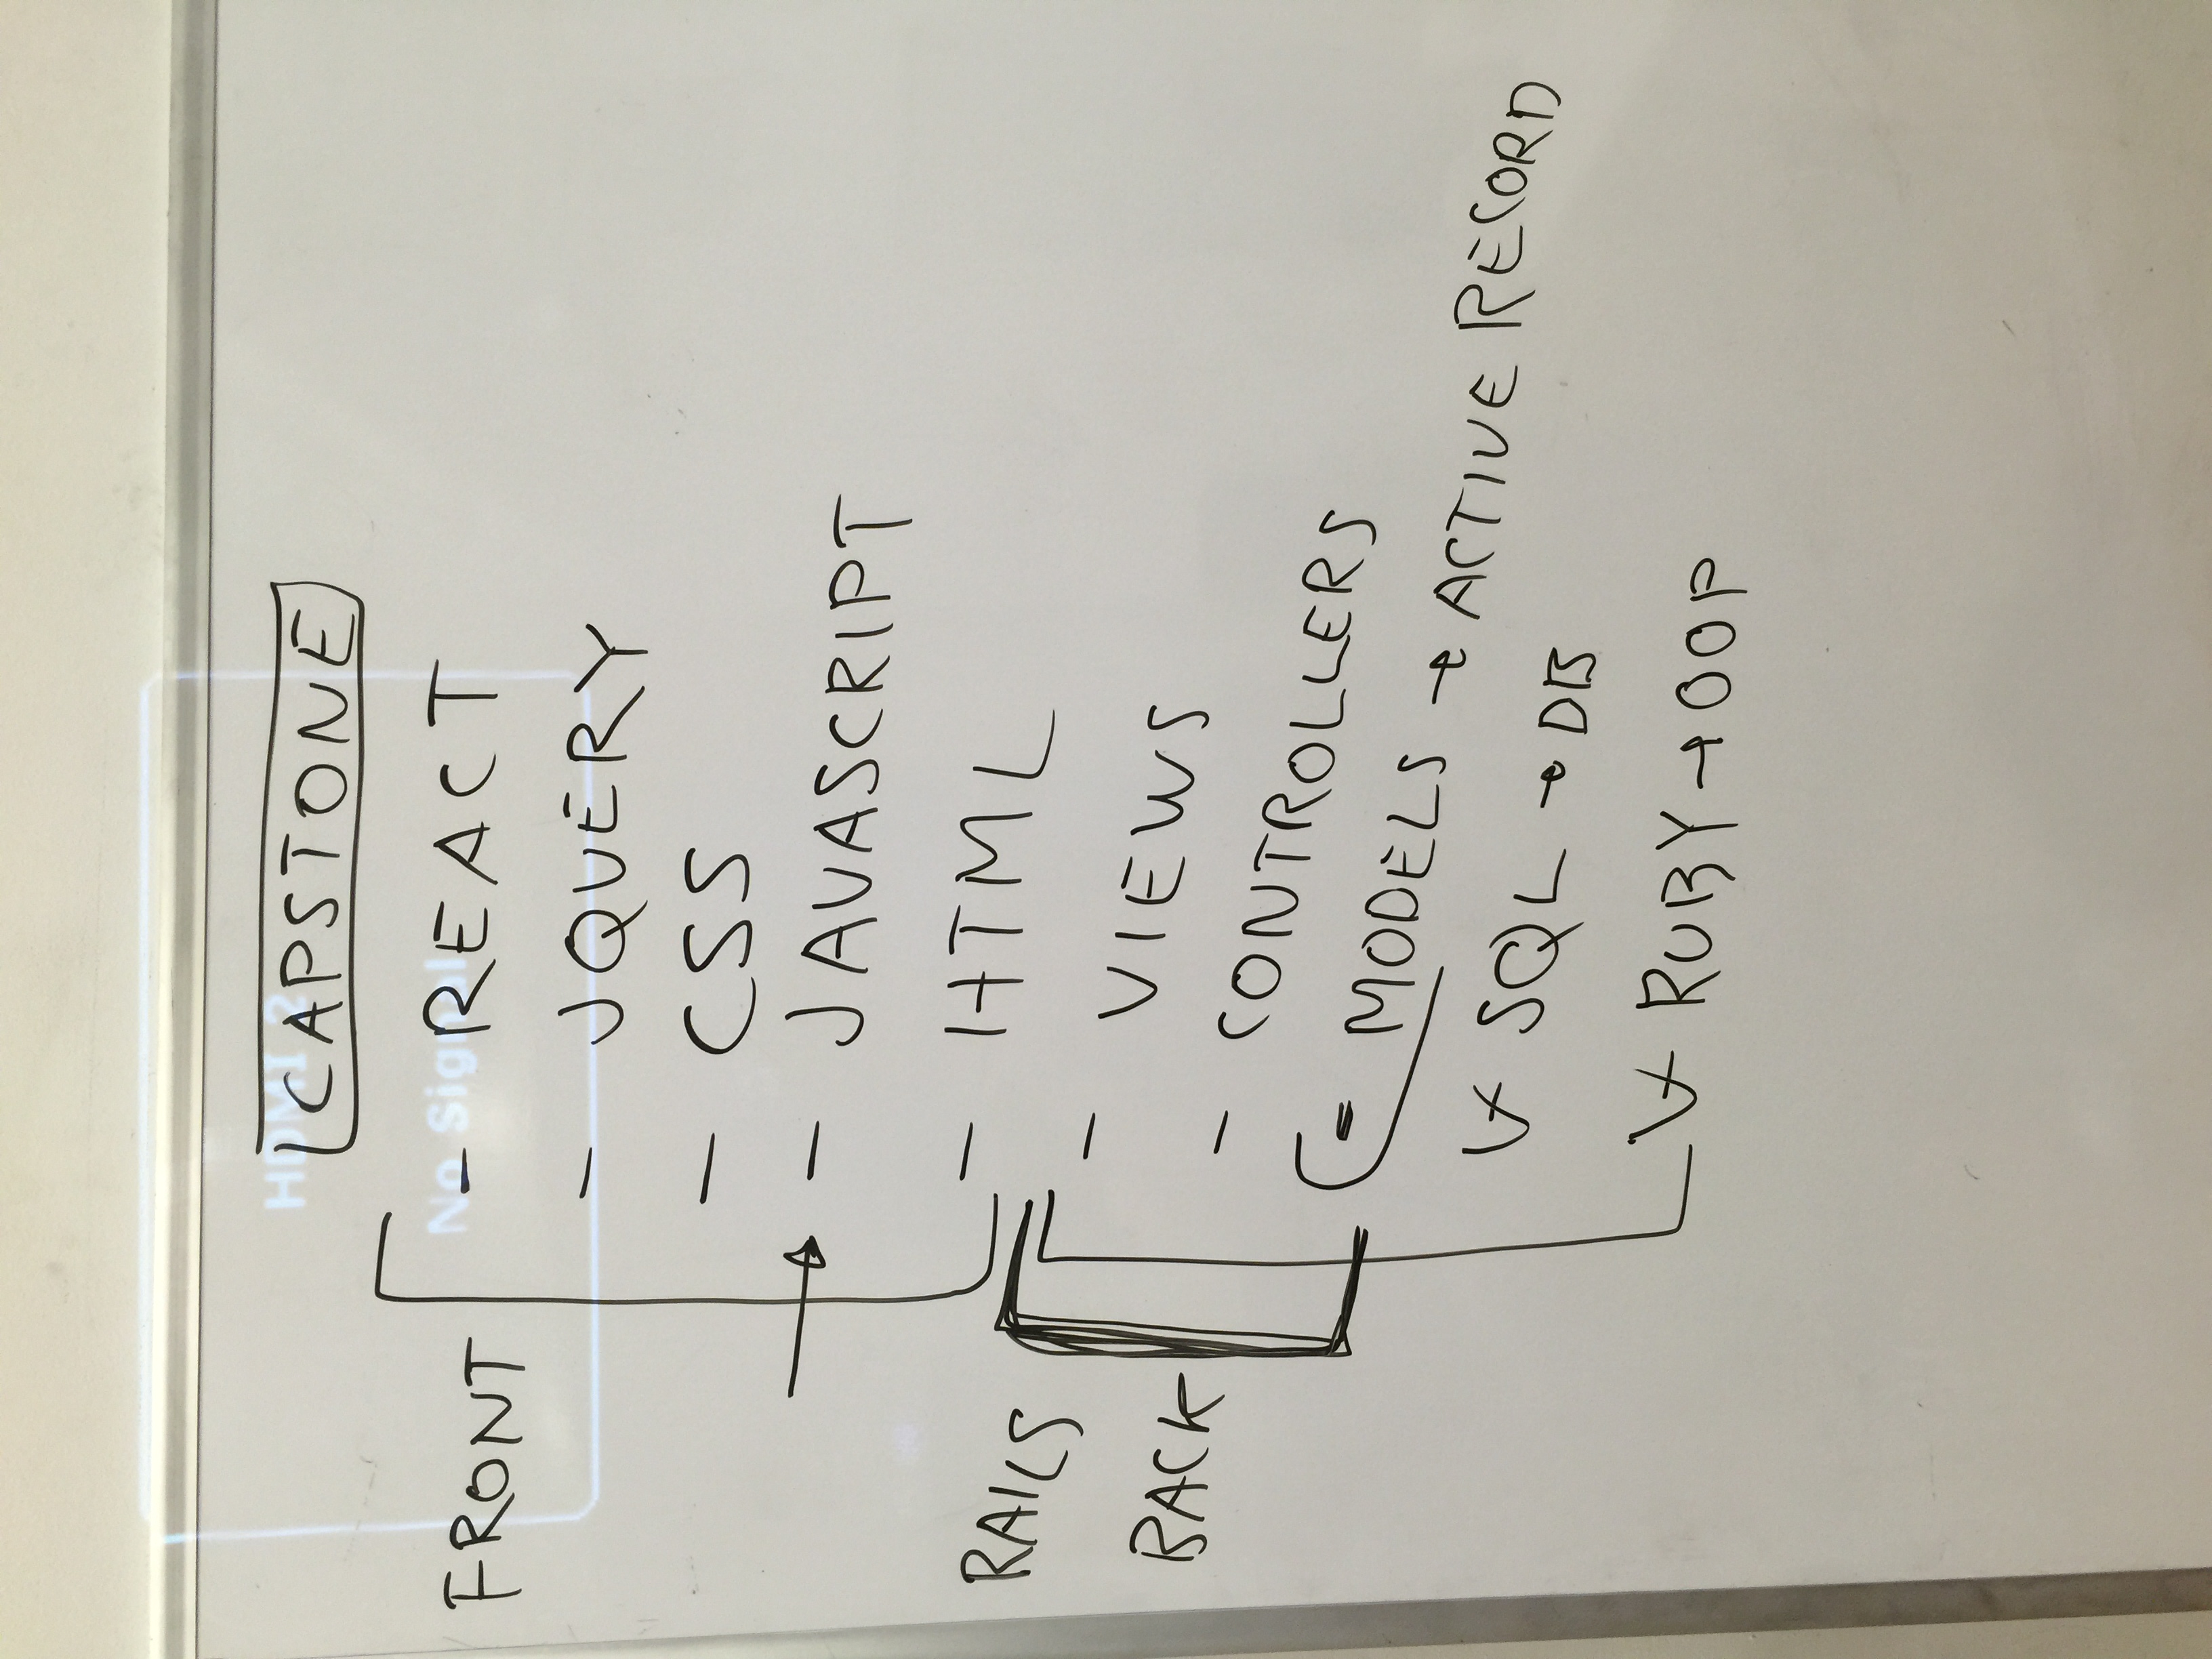 HDMI 2
CAPSTONE
No Signal
FRONT
- REACT
- JQUERY
- CSS
→ - JAVASCRIPT
- HTML
RAILS
- VIEWS
BACK
- CONTROLLERS
- MODELS → ACTIVE RECORD
SQL → DB
RUBY → OOP